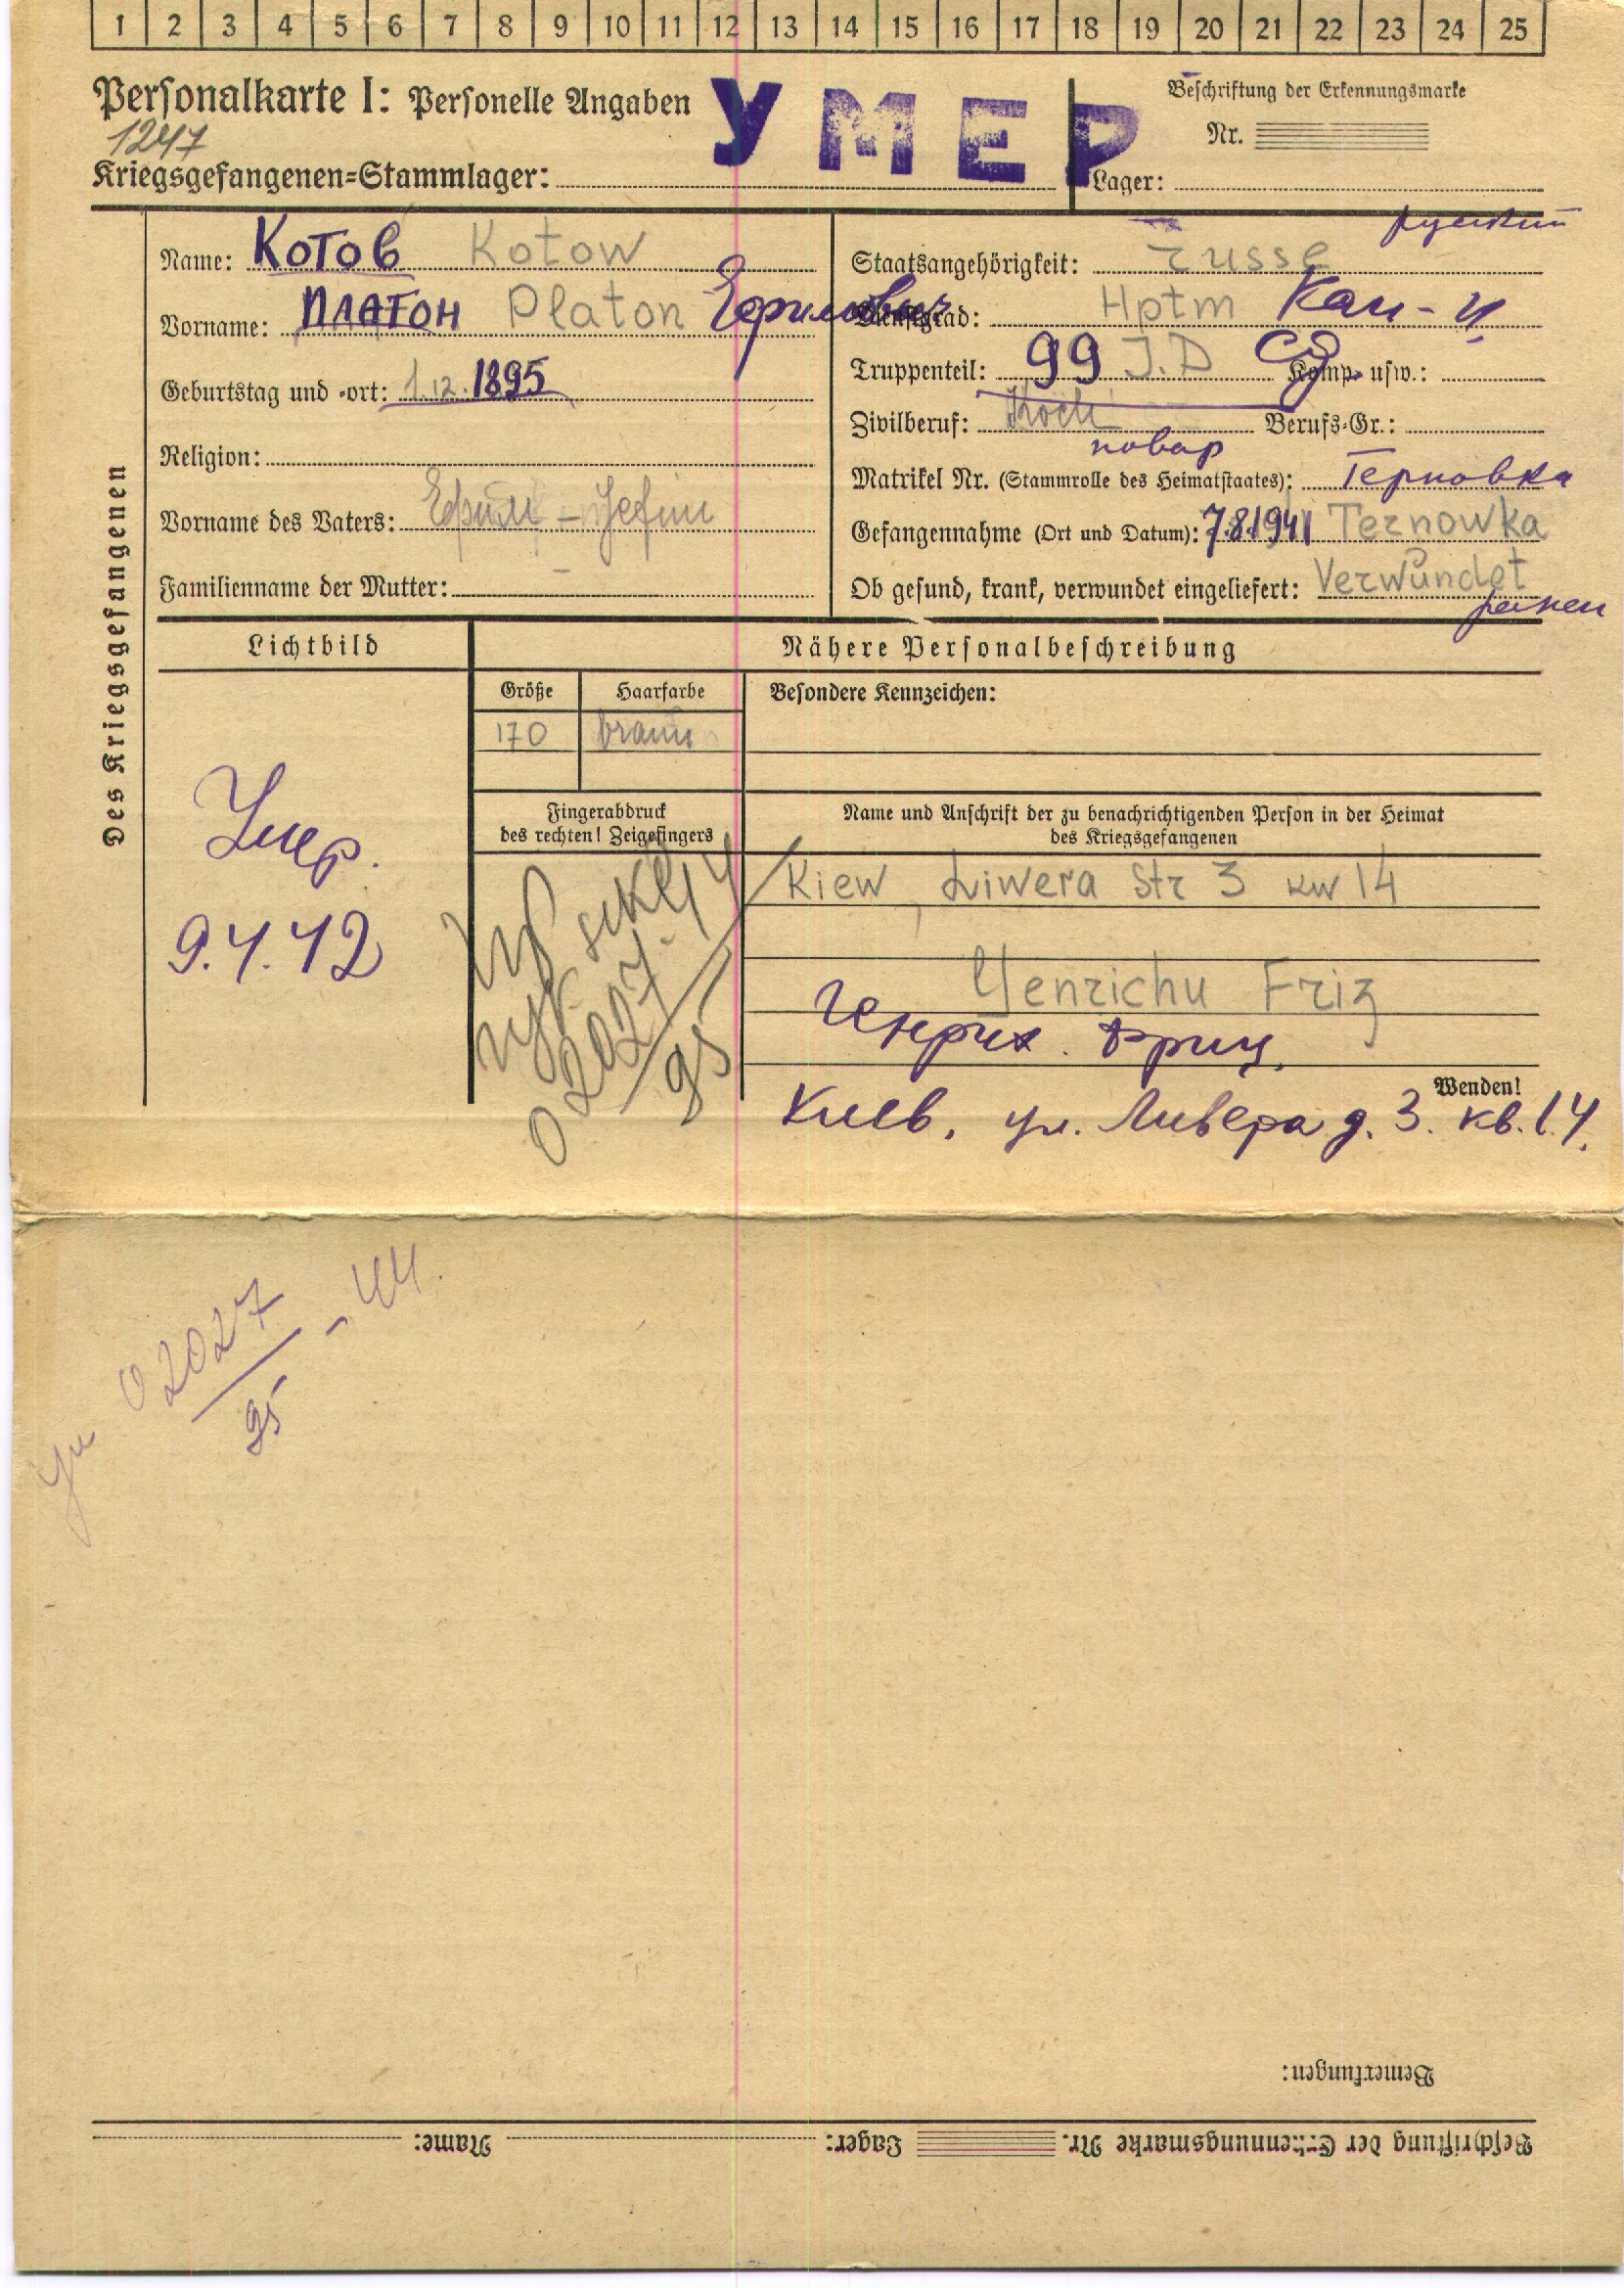 1 2 3 4 5 6 7 8 9 10 11 12 13 14 15 16 17 18 19 20 21 22 23 24 25
Personalkarte I: Personelle Angaben
УМЕР
Beschriftung der Erkennungsmarke
1247
Nr.
Kriegsgefangenen-Stammlager:
Lager:
Des Kriegsgefangenen
Name: Котов Kotow
Vorname: Платон Platon Ефимович
Geburtstag und -ort: 1.12.1895
Religion:
Vorname des Vaters: Ефим - Jefim
Familienname der Mutter:
русский
Staatsangehörigkeit: russe
Dienstgrad: Hptm Кап-н
Truppenteil: 99 I.D сд Komp. usw.:
Zivilberuf: Koch Berufs-Gr.:
повар
Matrikel Nr. (Stammrolle des Heimatstaates): Терновка
Gefangennahme (Ort und Datum): 7.8.1941 Ternowka
Ob gesund, krank, verwundet eingeliefert: Verwundet
ранен
Lichtbild
Nähere Personalbeschreibung
Größe Haarfarbe Besondere Kennzeichen:
170 braun
Fingerabdruck
des rechten! Zeigefingers
Name und Anschrift der zu benachrichtigenden Person in der Heimat
des Kriegsgefangenen
Умер.
9.4.42
02027
95
Kiew, Liwera Str 3 kw 14
Genrichu Friz
Генрих. Фриц.
Wenden!
Киев, ул. Ливера д. 3. кв. 14.
02027 - 44.
95
Bemerkungen:
Beschriftung der Erkennungsmarke Nr. Lager: Name: